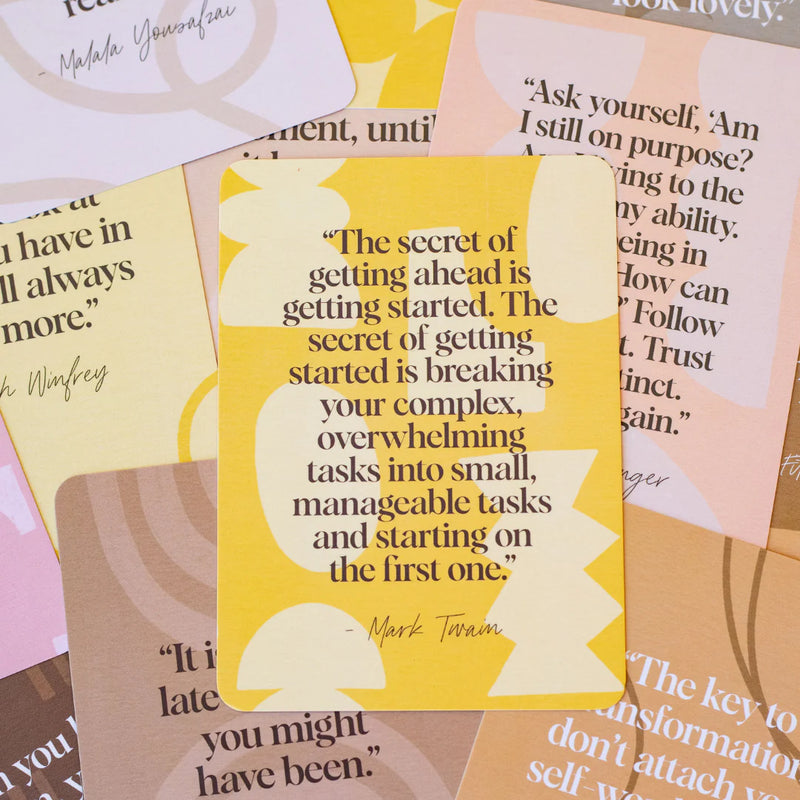 - Malala Yousafzai
look lovely."
"Ask yourself, 'Am
I still on purpose?
ying to the
my ability.
being in
How can
" Follow
t. Trust
gain."
until
at
have in
always
more."
Winfrey
"The secret of
getting ahead is
getting started. The
secret of getting
started is breaking
your complex,
overwhelming
tasks into small,
manageable tasks
and starting on
the first one."
- Mark Twain
"It
late
you might
have been."
"The key to
don't attach